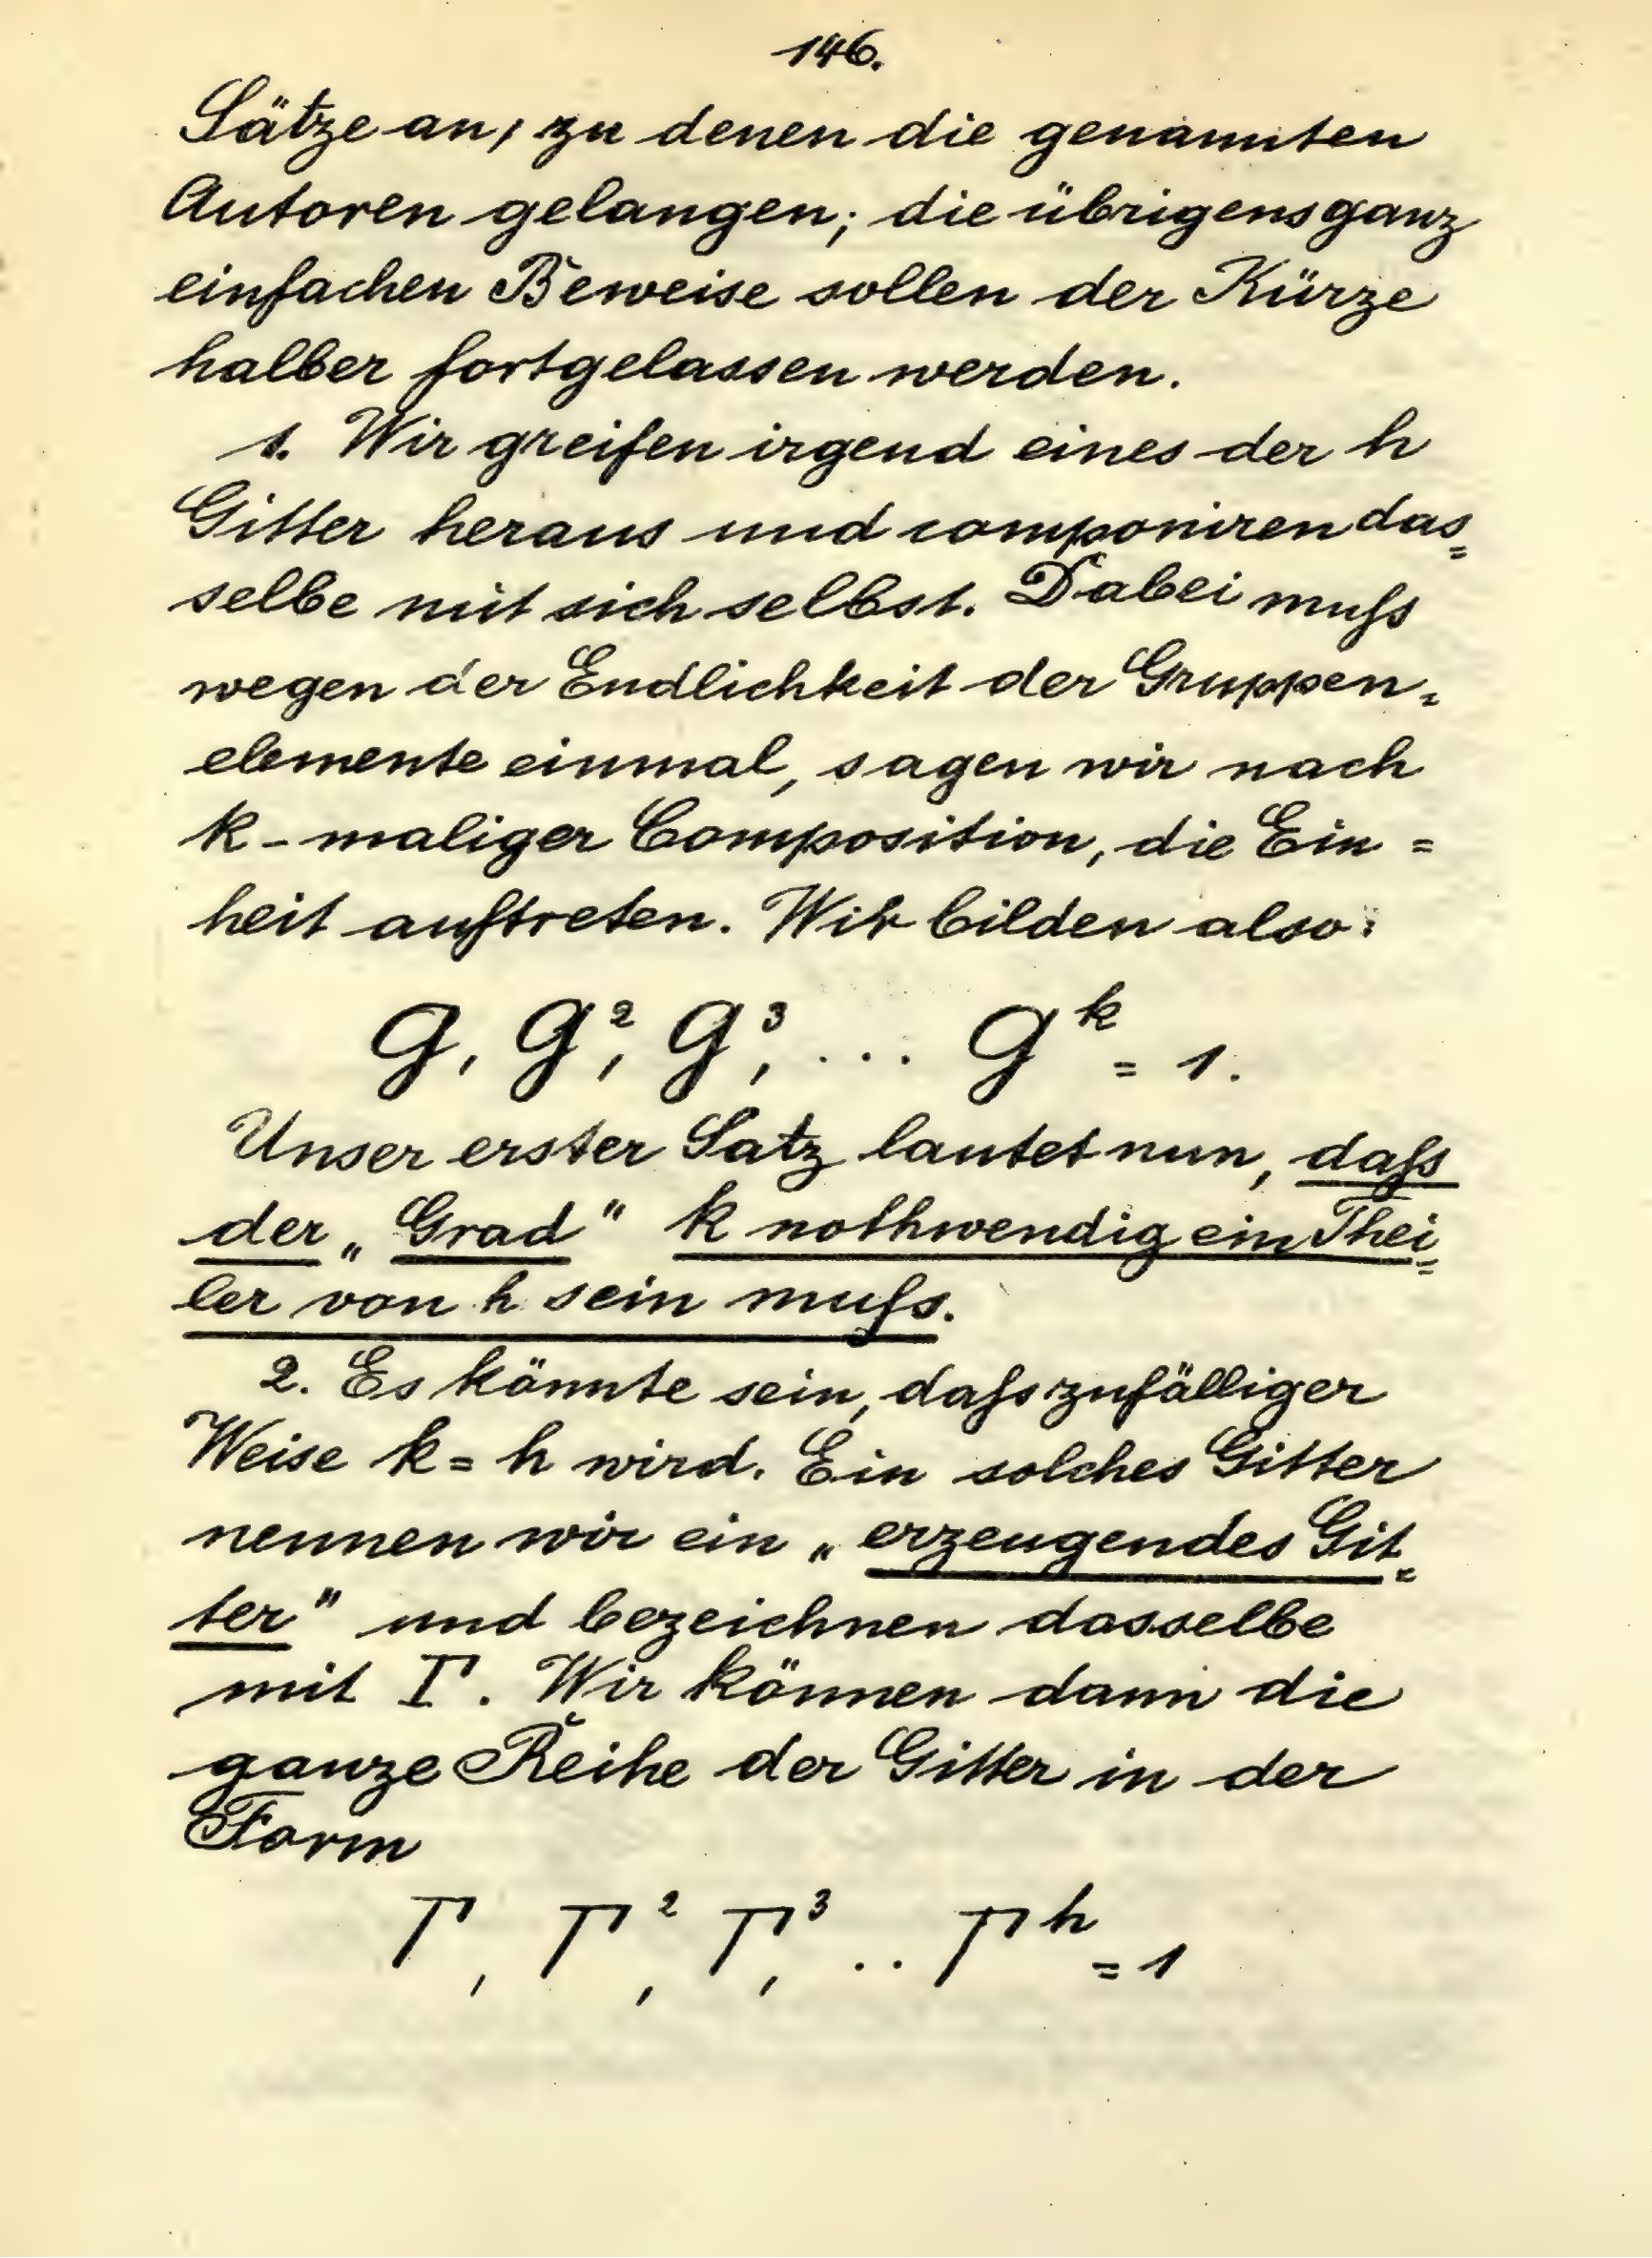 146.
Sätze an, zu denen die genannten
Autoren gelangen; die übrigens ganz
einfachen Beweise sollen der Kürze
halber fortgelassen werden.
1. Wir greifen irgend eines der h
Gitter heraus und componiren das=
selbe mit sich selbst. Dabei muſs
wegen der Endlichkeit der Gruppen=
elemente einmal, sagen wir nach
k-maliger Composition, die Ein=
heit auftreten. Wir bilden also:
G, G², G³, ... Gᵏ = 1.
Unser erster Satz lautet nun, daſs
der „Grad" k nothwendig ein Thei=
ler von h sein muſs.
2. Es könnte sein, daſs zufälliger
Weise k = h wird. Ein solches Gitter
nennen wir ein „erzeugendes Git=
ter" und bezeichnen dasselbe
mit Γ. Wir können dann die
ganze Reihe der Gitter in der
Form
Γ, Γ², Γ³, .. Γʰ = 1